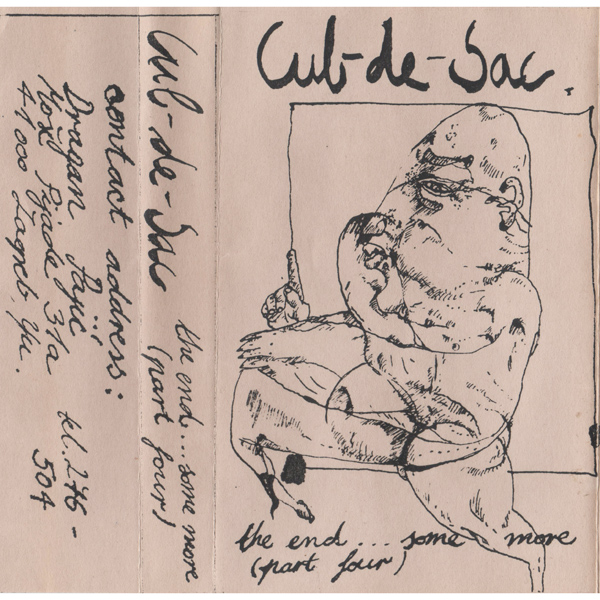 Cul-de-Sac.
the end... some more
(part four)
Cul-de-Sac
the end... some more
(part four)
contact address:
Dragan Pajić
Moše Pijade 31a
41000 Zagreb Yu.
tel. 276-
504